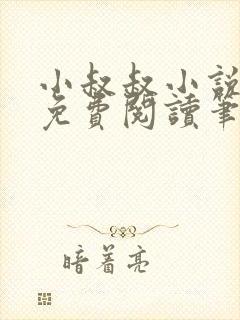 小叔叔小說
免費閱讀筆
暗着亮